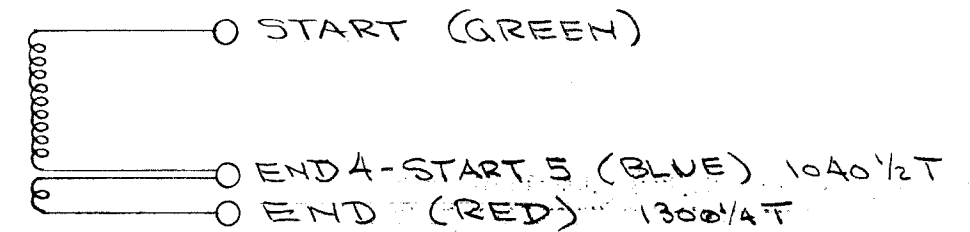 START (GREEN)
END 4-START 5 (BLUE) 1040 1/2 T
END (RED) 1300 1/4 T